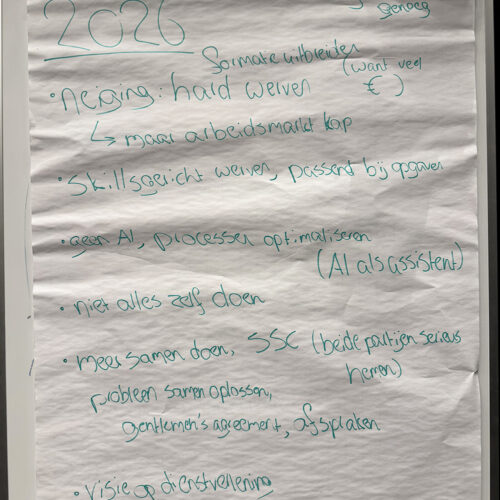 genoeg
2026
formatie uitbreiden
• neiging: hard werven (want veel € )
↳ maar arbeidsmarkt kap
• Skillsgericht werven, passend bij opgaven
• geen AI, processen optimaliseren
(AI als assistent)
• niet alles zelf doen
• meer samen doen, SSC (beide partijen serieus nemen)
probleem samen oplossen,
gentlemen's agreement, afspraken
• visie op dienstverlening